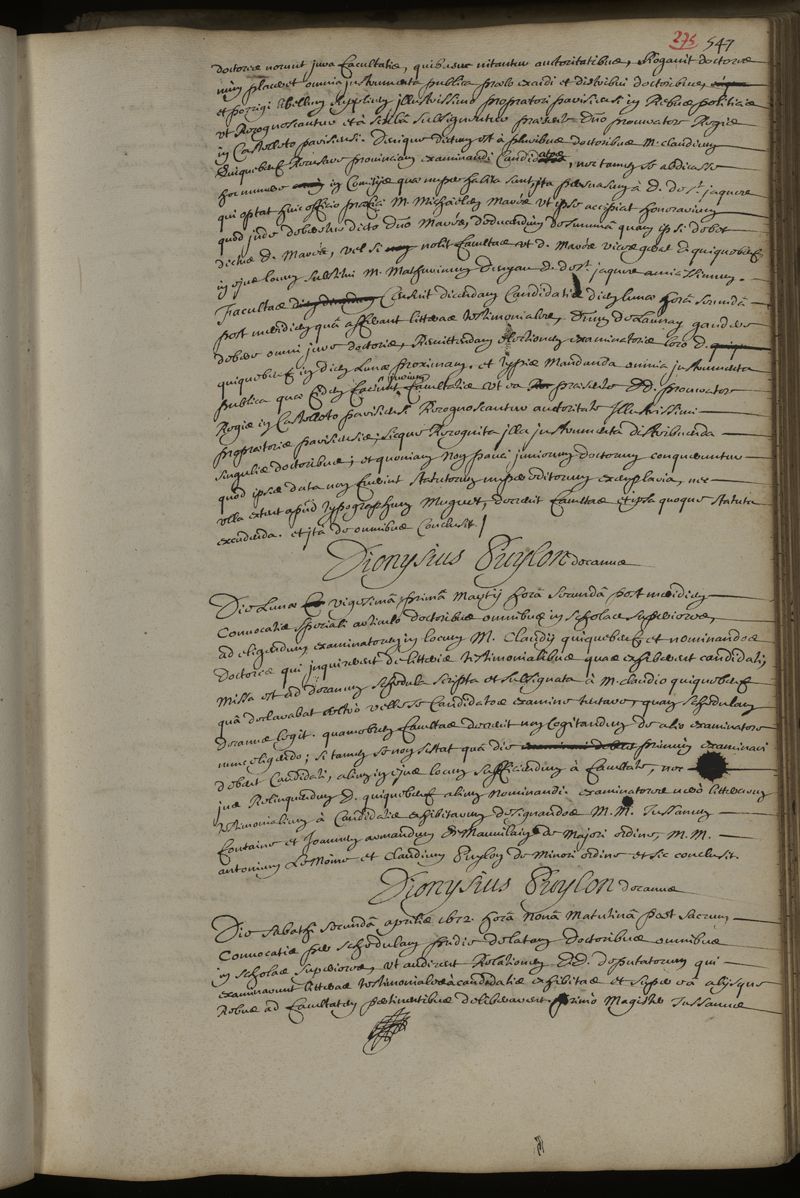 275 547
doctores norunt jura facultatis, quibusve nitantur auctoritatibus, Rogavit doctores
num placeret omnia justrumenta publica prelo excudi et distribui doctoribus,
et porrigi libellum supplicem jllustrissimo propraetori parisiensi in Rebus politicis
ut Recognoscantur et à subsignentur praesente Dno procuratore Regis
in Castelleto parisiensi. Denique dictum est à pluribus doctoribus M. claudium
Quiquebeuf Recusare provinciam examinandi Candidatos, nec tamen se abdicasse
hoc munere in Comitiis quae nuper habita sunt, ita persuasum à D. de St. jaques
qui optat huic officio praefici M. Michaelem Marès ut ipse accipiat honorarium
quod jude debebitur dicto Dno Marès, deducendum de summâ quam ipsi debet
dictus D. Marès, vel si nolit facultas ut D. Marès vices gerat D. quiquebeuf
in ejus locum substitui M. Mathurinum Denyau D. de St. jaques amicissimum.
Facultas Censuit dicendam Candidatis diem lunae horâ secundâ
post meridiem quâ afferant litteras testimoniales, Dnum de Launay gaudere
debere omni jure doctoris, Remittendam electionem examinatoris loco D.
quiquebeuf in diem Lunae proximam. et typis Mandanda omnia justrumenta
publica quae fidem faciunt jurium facultatis ut ea praesente DD. procuratore
Regis in Castelleto parisiensi Recognoscantur auctoritate jllustrissimi
propraetoris parisiensis, sicque Recognita illa justrumenta distribuenda
singulis doctoribus; et quoniam non pauci juniorum doctorum conqueruntur
quod ipsis data non fuerint statutorum nuper editorum exemplaria, nec
ulla extent apud typographum Muguet, decrevit facultas et ipsa quoque statuta
excudenda. et ità de omnibus Conclusit.
Dionysius Puylon decanus
Die Lunae vigesimâ primâ Martij horâ secundâ post meridiem
Convocatis speciali articulo doctoribus omnibus in scholas superiores,
ad eligendum examinatorem in locum M. Claudij quiquebeuf et nominandos
Doctores qui inquirerent de litteris testimonialibus quas exhiberent candidati,
missa est ad decanum schedula scripta et subsignata à M. claudio quiquebeuf
quâ declarabat velle se Candidatos examine tentare, quam schedulam
decanus legit. quamobrem facultas decrevit non cogitandum de alio examinatore
nunc eligendo; si tamen se non sistat quâ die primum examinari
debent Candidati, alium in ejus locum sufficiendum à facultate, nec
jus Relinquendum D. quiquebeuf alium nominandi. examinatores vero litterarum
testimonialium à Candidatis exhibitarum designandos M.M. Tussanum
fontaine et Joannem armandum de Mauvilain de Majori ordine, M.M.
antonium Le Moine et Claudium Puylon de Minori ordine et sic conclusit.
Dionysius Puylon decanus
Die sabathi secundâ aprilis 1672. horâ Nonâ matutinâ post sacrum
Convocatis per schedulam pridie delatam doctoribus omnibus
in scholas superiores, ut audirent Relationem DD. deputatorum qui
examinaverunt litteras testimoniales à candidatis exhibitas et super eâ alijsque
Rebus ad facultatem pertinentibus deliberarent. primò Magister Tussanus